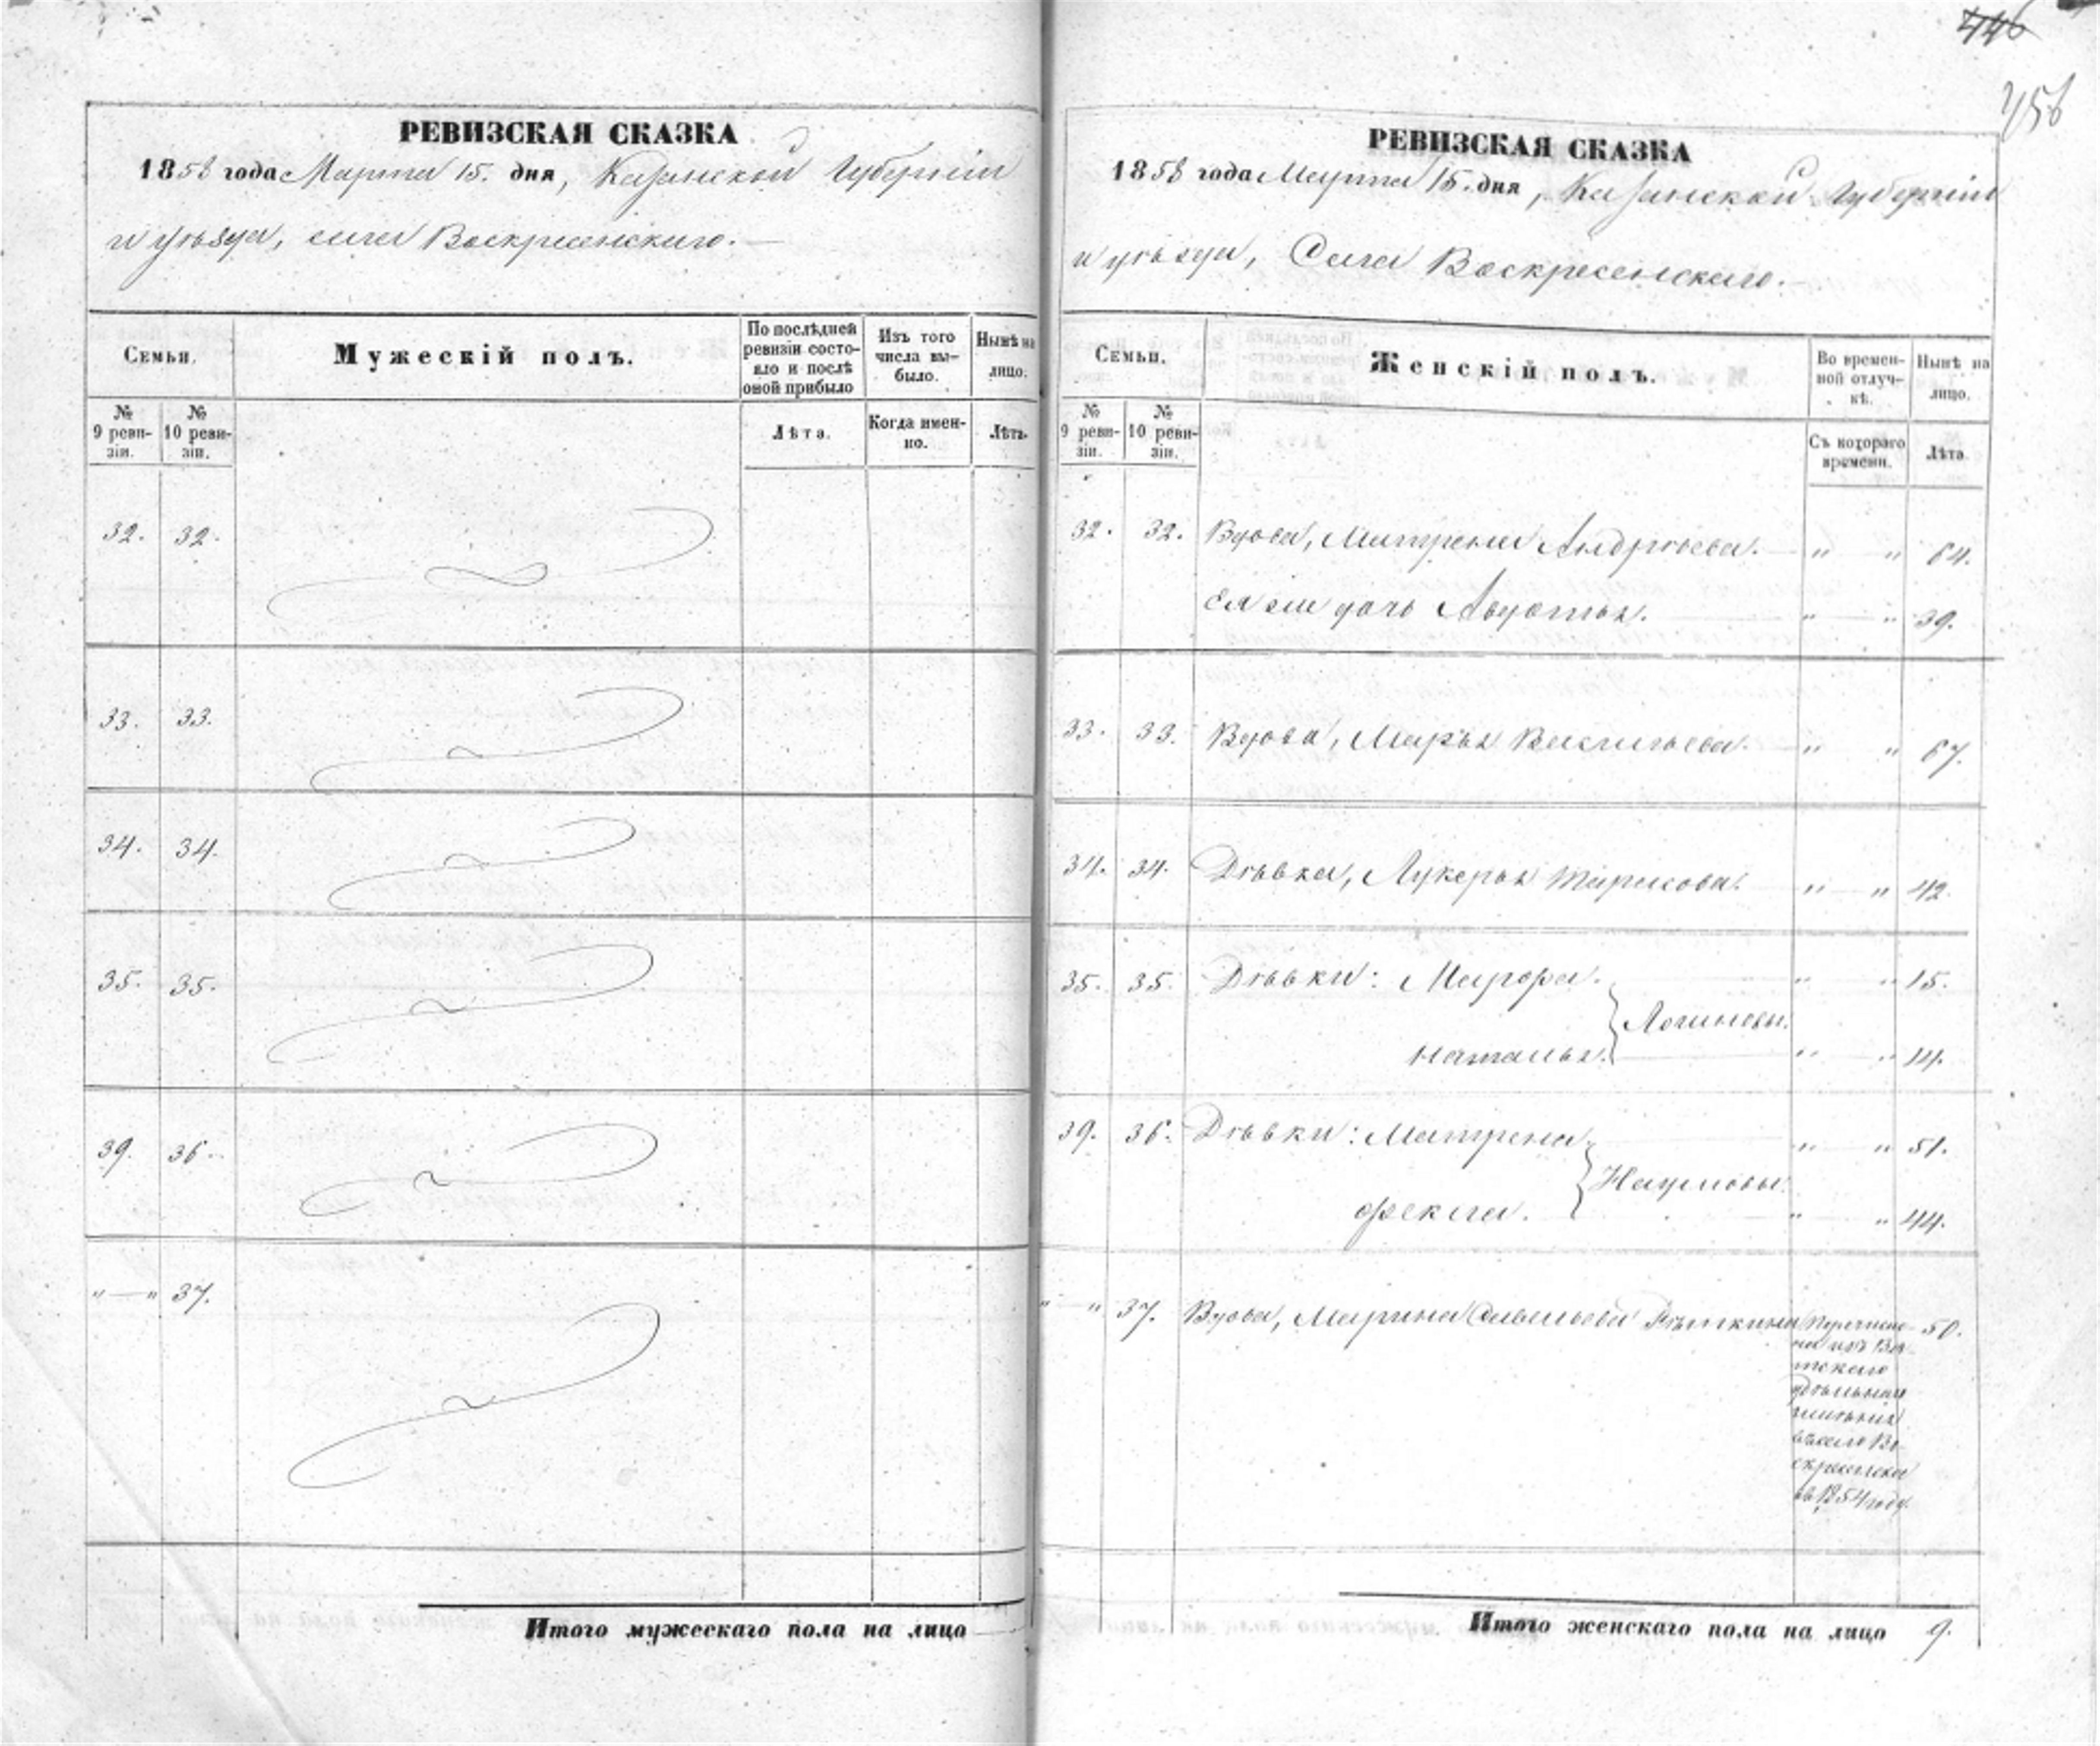 446
456
РЕВИЗСКАЯ СКАЗКА
1858 года Марта 15. дня, Казанской Губерніи
и уѣзда, села Воскресенскаго.
Семьи.
Мужескій полъ.
По послѣдней ревизіи состояло и послѣ оной прибыло
Изъ того числа вы-было.
Нынѣ на лицо.
№ 9 реви-зіи.
№ 10 реви-зіи.
Лѣта.
Когда имен-но.
Лѣта.
32. 32.
33. 33.
34. 34.
35. 35.
39. 36.
" — " 37.
Итого мужескаго пола на лицо —
РЕВИЗСКАЯ СКАЗКА
1858 года Марта 15. дня, Казанской Губерніи
и уѣзда, Села Воскресенскаго.
Семьи.
Женскій полъ.
Во времен-ной отлуч-кѣ.
Нынѣ на лицо.
№ 9 реви-зіи.
№ 10 реви-зіи.
Съ котораго времени.
Лѣта
32. 32. Вдова, Матрена Андрѣева. " " 64.
Ея же дочь Авдотья. " " 39.
33. 33. Вдова, Марья Васильева. " " 67.
34. 34. Дѣвка, Лукерья Тарасова. " " 42.
35. 35. Дѣвки: Мавра. " " 15.
Логиновы.
Наталья. " " 14.
39. 36. Дѣвки: Матрена " " 51.
Наумовы.
Фекла. " " 44.
" — " 37. Вдова, Марина Савельева Рѣпкина Перечисле- 50.
на изъ Вя-
тскаго
удѣльнаго
имѣнія
въ село Во-
скресенское
въ 1854 году.
Итого женскаго пола на лицо 9.